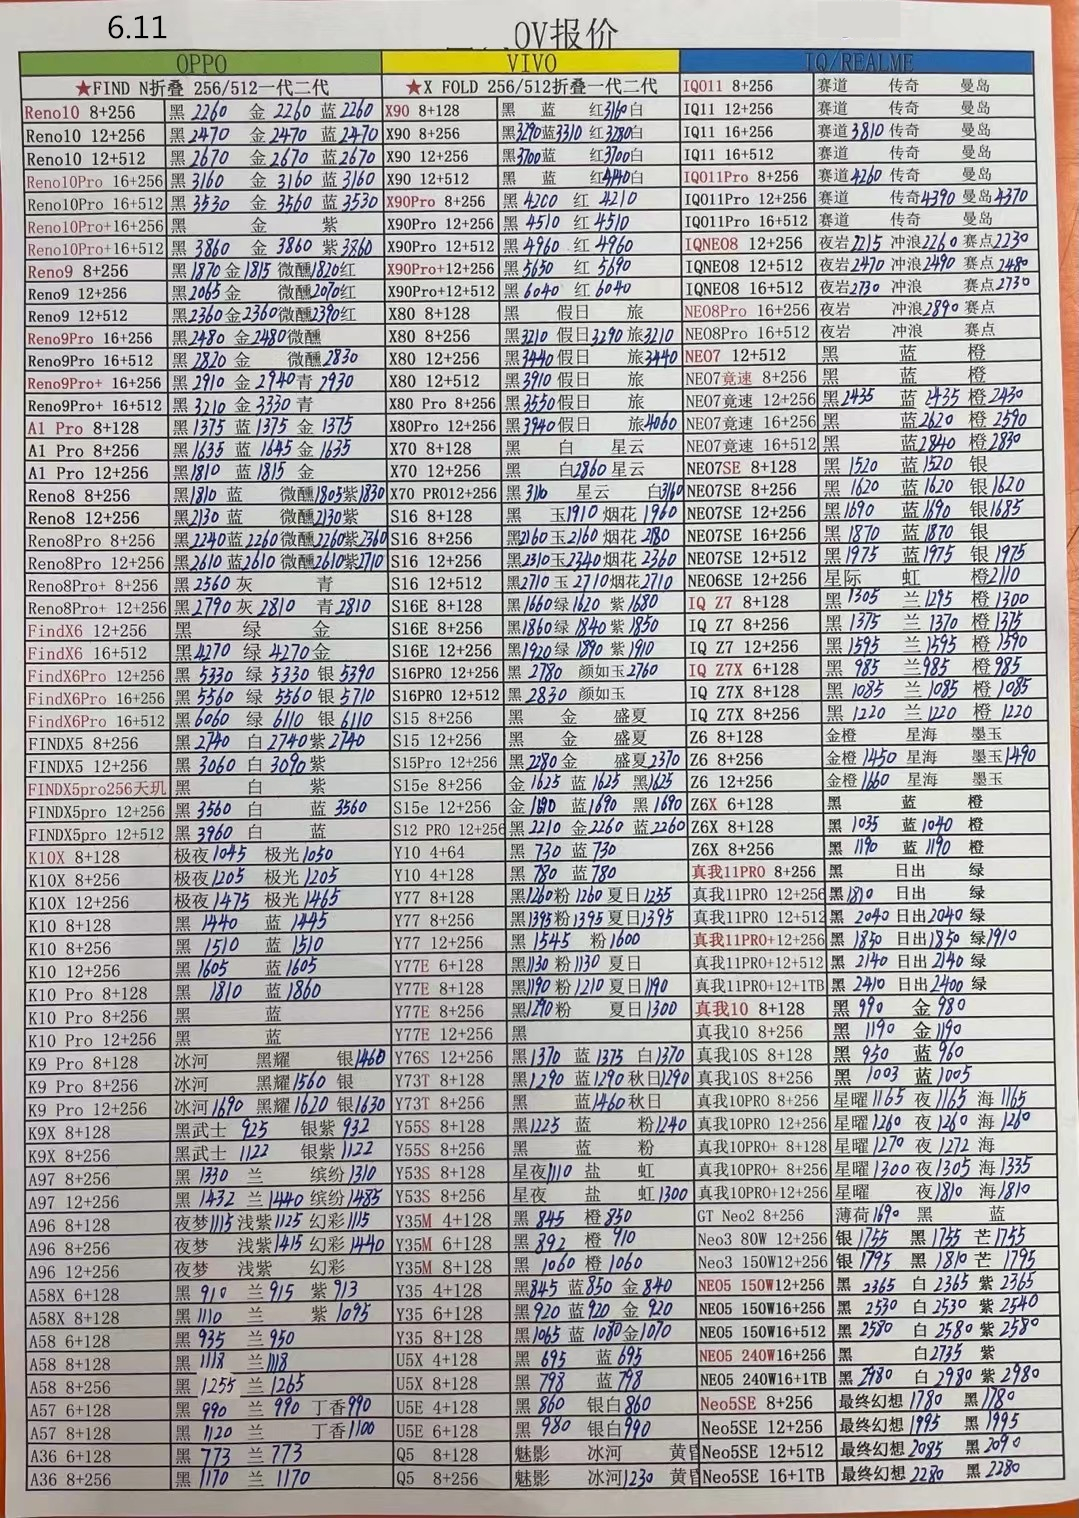 6.11
OV报价
OPPO VIVO IQ/REALME
★FIND N折叠 256/512一代二代 ★X FOLD 256/512折叠一代二代 IQO11 8+256 赛道 传奇 曼岛
Reno10 8+256 黑 2260 金 2260 蓝 2260 X90 8+128 黑 蓝 红3160白 IQ11 12+256 赛道 传奇 曼岛
Reno10 12+256 黑 2470 金 2470 蓝 2470 X90 8+256 黑3290蓝3310 红3280白 IQ11 16+256 赛道3810 传奇 曼岛
Reno10 12+512 黑 2670 金 2670 蓝 2670 X90 12+256 黑3700蓝 红3700白 IQ11 16+512 赛道 传奇 曼岛
Reno10Pro 16+256 黑 3160 金 3160 蓝 3160 X90 12+512 黑 蓝 红4140白 IQO11Pro 8+256 赛道4260 传奇 曼岛
Reno10Pro 16+512 黑 3530 金 3560 蓝 3530 X90Pro 8+256 黑 4200 红 4210 IQO11Pro 12+256 赛道 传奇4390 曼岛4370
Reno10Pro+16+256 黑 金 紫 X90Pro 12+256 黑 4510 红 4510 IQO11Pro 16+512 赛道 传奇 曼岛
Reno10Pro+16+512 黑 3860 金 3860 紫 3860 X90Pro 12+512 黑 4960 红 4960 IQNEO8 12+256 夜岩2215 冲浪2260 赛点2230
Reno9 8+256 黑1870 金1815 微醺1820红 X90Pro+12+256 黑 5650 红 5690 IQNEO8 12+512 夜岩2470 冲浪2490 赛点2480
Reno9 12+256 黑2065金 微醺2070红 X90Pro+12+512 黑 6040 红 6040 IQNEO8 16+512 夜岩2730 冲浪 赛点2730
Reno9 12+512 黑2360金2360微醺2390红 X80 8+128 黑 假日 旅 NEO8Pro 16+256 夜岩 冲浪2890 赛点
Reno9Pro 16+256 黑2480 金2480微醺 X80 8+256 黑3210 假日3290 旅3210 NEO8Pro 16+512 夜岩 冲浪 赛点
Reno9Pro 16+512 黑 2820 金 微醺2830 X80 12+256 黑3440假日 旅3440 NEO7 12+512 黑 蓝 橙
Reno9Pro+ 16+256 黑 2910 金 2940青 2930 X80 12+512 黑3910 假日 旅 NEO7竟速 8+256 黑 蓝 橙
Reno9Pro+ 16+512 黑 3210 金 3330 青 X80 Pro 8+256 黑3550假日 旅 NEO7竟速 12+256 黑2435 蓝 2435 橙2430
A1 Pro 8+128 黑 1375 蓝 1375 金 1375 X80Pro 12+256 黑3940假日 旅4060 NEO7竟速 16+256 黑 蓝2620 橙 2590
A1 Pro 8+256 黑 1635 蓝 1645 金 1635 X70 8+128 黑 白 星云 NEO7竟速 16+512 黑 蓝2840 橙2830
A1 Pro 12+256 黑1810 蓝 1815 金 X70 12+256 黑 白2860 星云 NEO7SE 8+128 黑 1520 蓝1520 银
Reno8 8+256 黑1810 蓝 微醺1805紫1830 X70 PRO12+256 黑 3110 星云 白3160 NEO7SE 8+256 黑 1620 蓝1620 银1620
Reno8 12+256 黑2130 蓝 微醺2130紫 S16 8+128 黑 玉1910 烟花 1960 NEO7SE 12+256 黑1690 蓝1690 银1685
Reno8Pro 8+256 黑2240蓝2260微醺2260紫2360 S16 8+256 黑2160玉2160 烟花 2180 NEO7SE 16+256 黑 1870 蓝1870 银
Reno8Pro 12+256 黑2610 蓝2610 微醺2610紫2710 S16 12+256 黑2310玉2340烟花 2360 NEO7SE 12+512 黑 1975 蓝1975 银 1975
Reno8Pro+ 8+256 黑 2560 灰 青 S16 12+512 黑2710 玉 2710烟花2710 NEO6SE 12+256 星际 虹 橙2110
Reno8Pro+ 12+256 黑 2790 灰 2810 青 2810 S16E 8+128 黑1660绿 1620 紫 1680 IQ Z7 8+128 黑 1305 兰 1295 橙 1300
FindX6 12+256 黑 绿 金 S16E 8+256 黑1860绿 1840 紫 1850 IQ Z7 8+256 黑 1375 兰 1370 橙 1375
FindX6 16+512 黑4270 绿 4270金 S16E 12+256 黑1920绿 1890 紫 1910 IQ Z7 12+256 黑 1595 兰 1595 橙 1590
FindX6Pro 12+256 黑 5330 绿 5330 银 5390 S16PRO 12+256 黑 2780 颜如玉2760 IQ Z7X 6+128 黑 985 兰985 橙985
FindX6Pro 16+256 黑 5560 绿 5560 银 5710 S16PRO 12+512 黑 2830 颜如玉 IQ Z7X 8+128 黑 1085 兰1085 橙 1085
FindX6Pro 16+512 黑6060 绿 6110 银 6110 S15 8+256 黑 金 盛夏 IQ Z7X 8+256 黑 1220 兰 1220 橙 1220
FINDX5 8+256 黑 2740 白 2740紫 2740 S15 12+256 黑 金 盛夏 Z6 8+128 金橙 星海 墨玉
FINDX5 12+256 黑 3060 白 3090紫 S15Pro 12+256 黑2280金 盛夏2370 Z6 8+256 金橙 1450 星海 墨玉1490
FINDX5pro256天玑 黑 白 紫 S15e 8+256 金 1625 蓝 1625 黑1625 Z6 12+256 金橙 1660 星海 墨玉
FINDX5pro 12+256 黑 3560 白 蓝 3560 S15e 12+256 金1690 蓝1690 黑 1690 Z6X 6+128 黑 蓝 橙
FINDX5pro 12+512 黑 3960 白 蓝 S12 PRO 12+256 黑 2210 金2260 蓝2260 Z6X 8+128 黑 1035 蓝 1040 橙
K10X 8+128 极夜1045 极光1050 Y10 4+64 黑 730 蓝730 Z6X 8+256 黑 1190 蓝 1190 橙
K10X 8+256 极夜1205 极光1205 Y10 4+128 黑 780 蓝780 真我11PRO 8+256 黑 日出 绿
K10X 12+256 极夜1475 极光1465 Y77 8+128 黑1260粉1260 夏日1255 真我11PRO 12+256 黑1810 日出 绿
K10 8+128 黑 1440 蓝 1445 Y77 8+256 黑1395粉1395夏日1395 真我11PRO 12+512 黑 2040 日出2040 绿
K10 8+256 黑 1510 蓝 1510 Y77 12+256 黑 1545 粉1600 真我11PRO+12+256 黑 1850 日出1850 绿1910
K10 12+256 黑1605 蓝1605 Y77E 6+128 黑1130 粉1130 夏日 真我11PRO+12+512 黑 2140 日出2140 绿
K10 Pro 8+128 黑 1810 蓝1860 Y77E 8+128 黑1190 粉1210 夏日1190 真我11PRO+12+1TB 黑 2410 日出2400 绿
K10 Pro 8+256 黑 蓝 Y77E 8+256 黑1290粉 夏日1300 真我10 8+128 黑 990 金 980
K10 Pro 12+256 黑 蓝 Y77E 12+256 黑 真我10 8+256 黑 1190 金1190
K9 Pro 8+128 冰河 黑耀 银1460 Y76S 12+256 黑1370 蓝 1375 白1370 真我10S 8+128 黑 950 蓝 960
K9 Pro 8+256 冰河 黑耀1560 银 Y73T 8+128 黑1290 蓝1290秋日1290 真我10S 8+256 黑 1003 蓝 1005
K9 Pro 12+256 冰河1690 黑耀 1620 银1630 Y73T 8+256 黑 蓝1460 秋日 真我10PRO 8+256 星曜1165 夜1165 海 1165
K9X 8+128 黑武士 925 银紫 932 Y55S 8+128 黑1225 蓝 粉1240 真我10PRO 12+256 星曜1260 夜1260 海1260
K9X 8+256 黑武士 1122 银紫1122 Y55S 8+256 黑 蓝 粉 真我10PRO+ 8+128 星曜1270 夜1272 海
A97 8+256 黑 1330 兰 缤纷1310 Y53S 8+128 星夜1110 盐 虹 真我10PRO+ 8+256 星曜1300夜1305 海1335
A97 12+256 黑 1432 兰1440 缤纷1485 Y53S 8+256 星夜 盐 虹1300 真我10PRO+12+256 星曜 夜1810 海1810
A96 8+128 夜梦1115 浅紫1125 幻彩1115 Y35M 4+128 黑 845 橙850 GT Neo2 8+256 薄荷1690 黑 蓝
A96 8+256 夜梦 浅紫1415 幻彩1440 Y35M 6+128 黑 892 橙 910 Neo3 80W 12+256 银1755 黑1755 芒1755
A96 12+256 夜梦 浅紫 幻彩 Y35M 8+128 黑 1060 橙 1060 Neo3 150W12+256 银1795 黑1810芒 1795
A58X 6+128 黑 910 兰 915 紫 913 Y35 4+128 黑845 蓝850 金 840 NEO5 150W12+256 黑 2365 白 2365 紫 2365
A58X 8+128 黑 1110 兰 紫 1095 Y35 6+128 黑920 蓝920 金 920 NEO5 150W16+256 黑 2530 白 2530 紫 2540
A58 6+128 黑 935 兰 950 Y35 8+128 黑1065 蓝 1080金1070 NEO5 150W16+512 黑 2580 白 2580 紫 2580
A58 8+128 黑 1118 兰1118 U5X 4+128 黑 695 蓝 695 NEO5 240W16+256 黑 白2735 紫
A58 8+256 黑 1255 兰 1265 U5X 8+128 黑 798 蓝 798 NEO5 240W16+1TB 黑 2980 白 2980 紫 2980
A57 6+128 黑 990 兰 990 丁香990 U5E 4+128 黑 860 银白860 Neo5SE 8+256 最终幻想 1780 黑1780
A57 8+128 黑 1120 兰 丁香1100 U5E 6+128 黑 980 银白990 Neo5SE 12+256 最终幻想 1995 黑1995
A36 6+128 黑 773 兰 773 Q5 8+128 魅影 冰河 黄昏 Neo5SE 12+512 最终幻想 2085 黑 2090
A36 8+256 黑 1170 兰 1170 Q5 8+256 魅影 冰河1230 黄昏 Neo5SE 16+1TB 最终幻想 2280 黑 2280